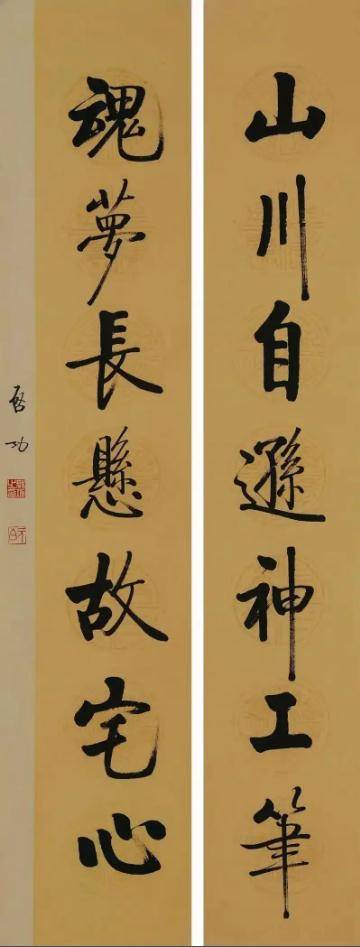 山川自遜神工筆
魂夢長懸故宅心
啓功